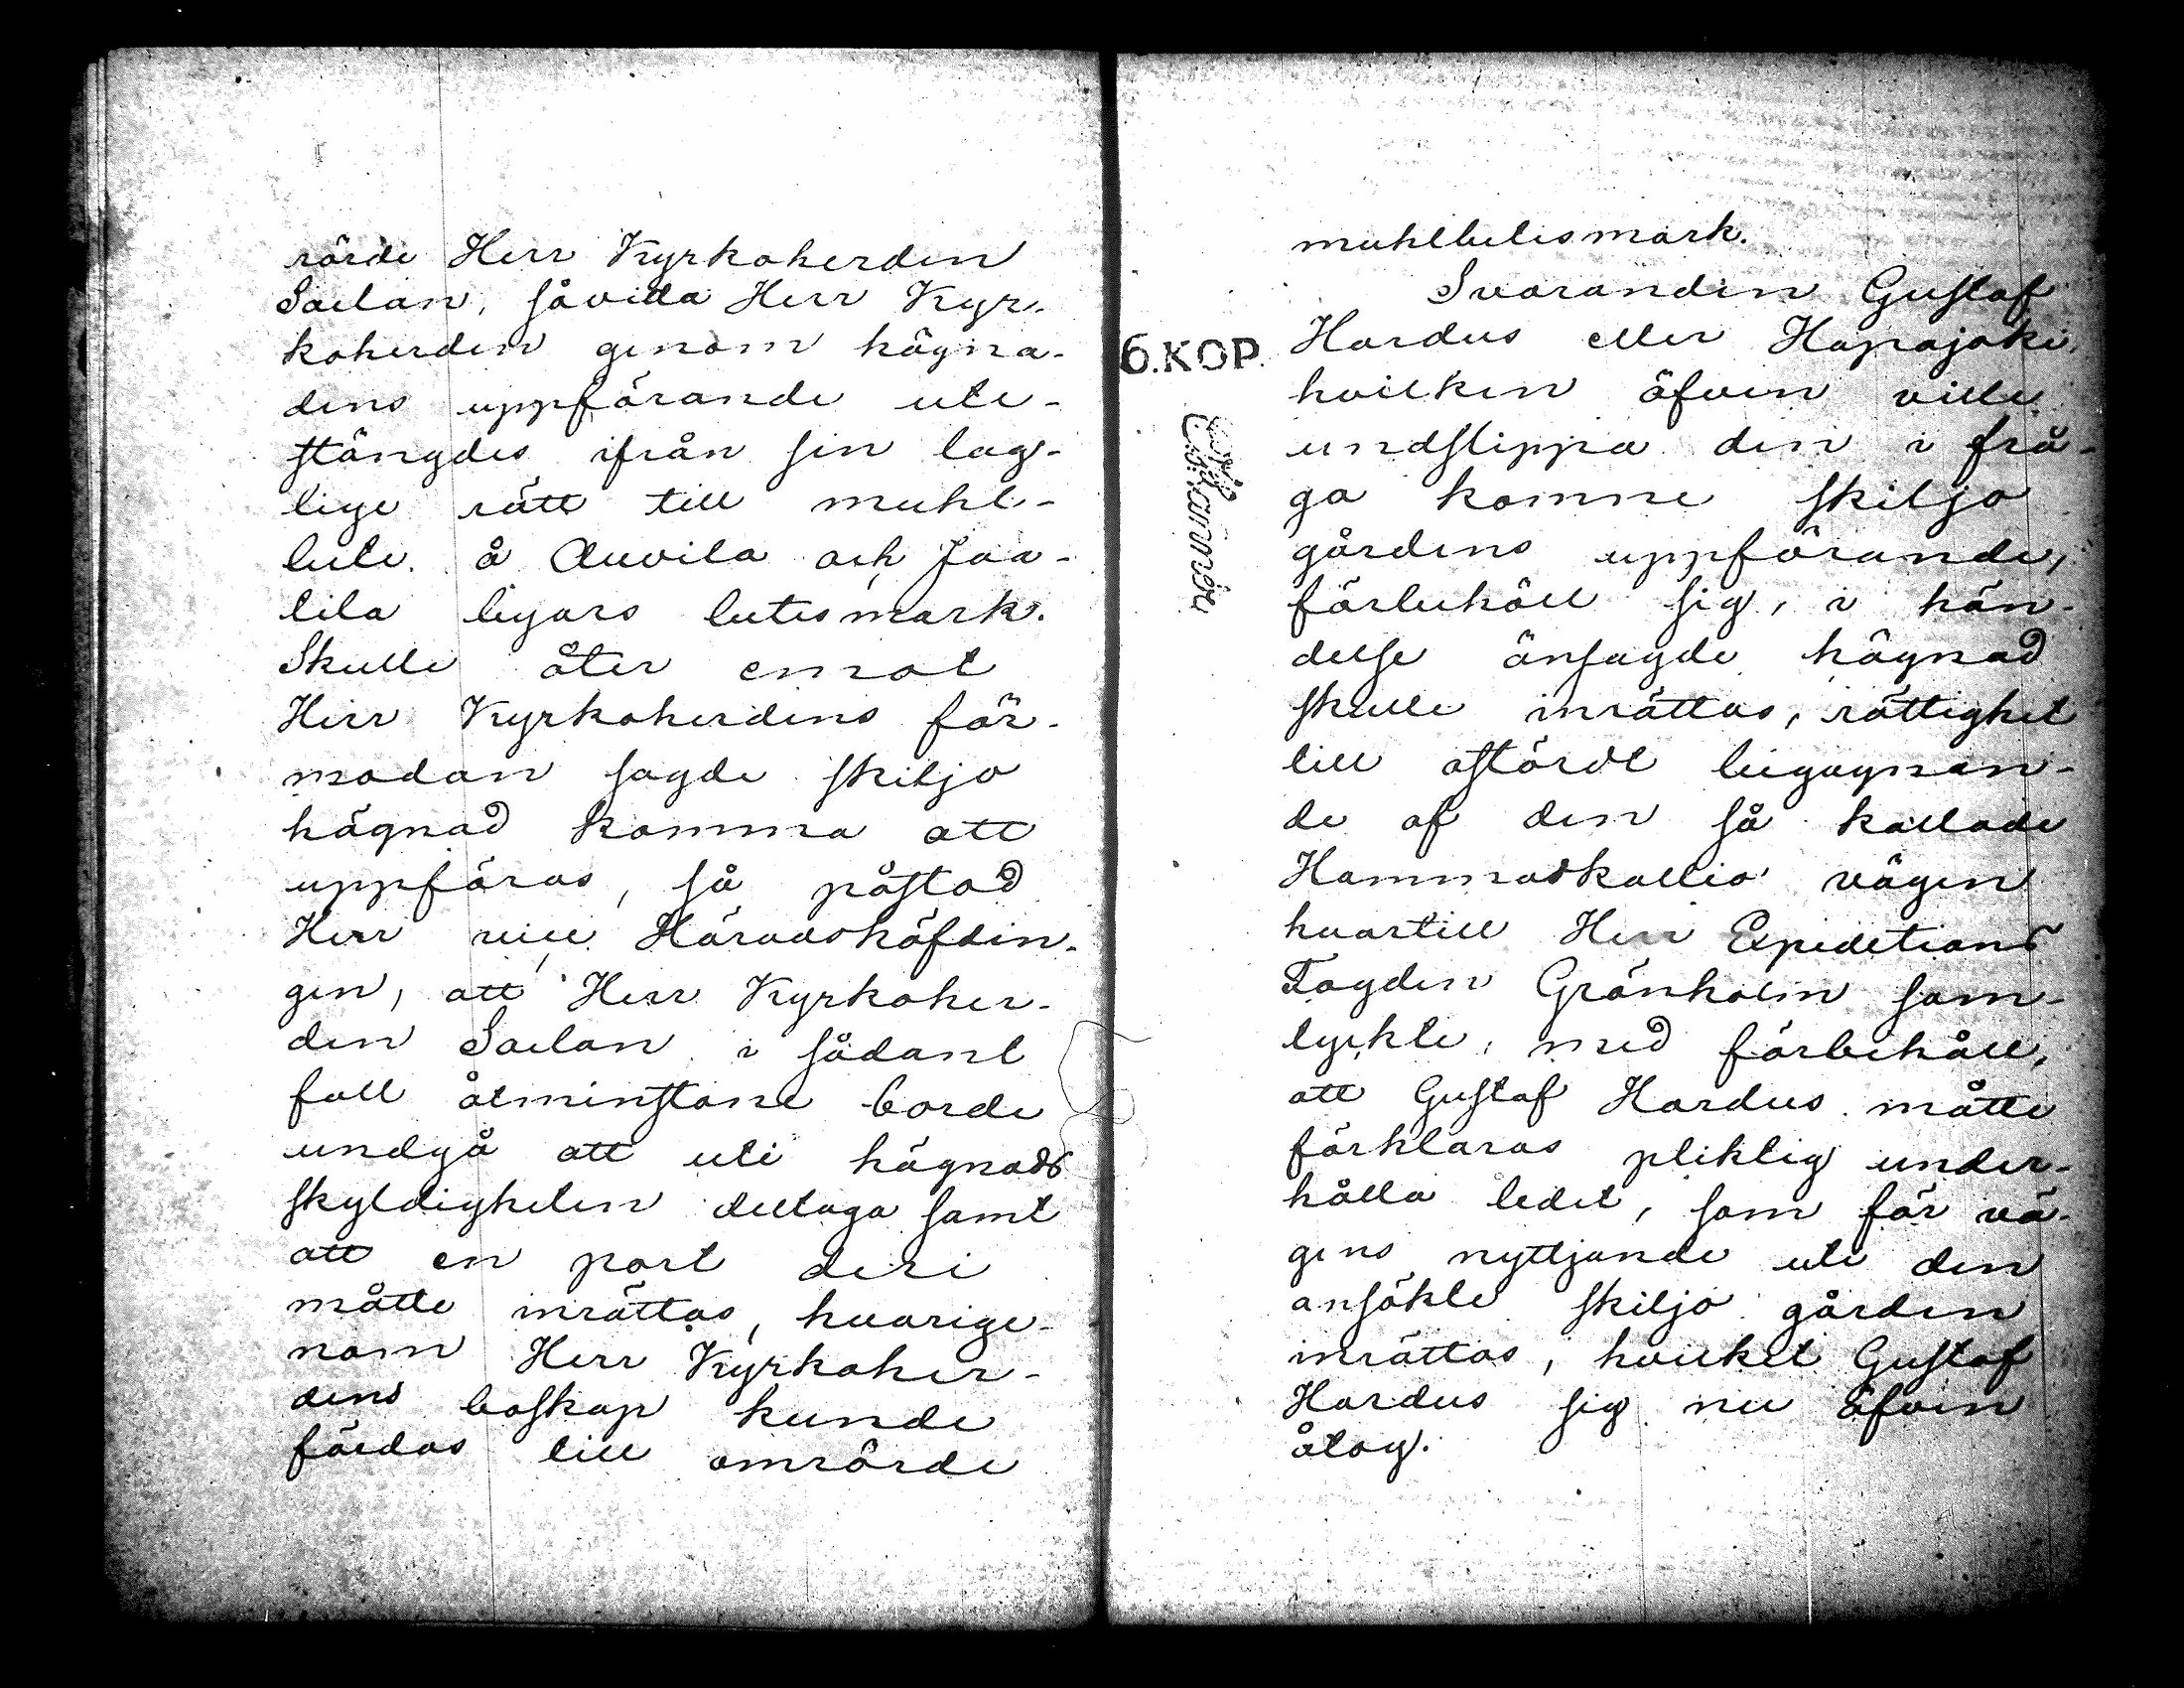 rörde Herr Kyrkoherden
Saelan, såvida Herr Kyr-
koherden genom hägna-
dens uppförande ute-
stängdes ifrån sin lag-
lige rätt till muhl-
bete å Auvila och Jaa-
tila byars betesmark.
Skulle åter emot
Herr Kyrkoherdens för-
modan sagde skiljo
hägnad komma att
uppföras, så påstod
Herr vice Häradshöfdin-
gen, att Herr Kyrkoher-
den Saelan i sådant
fall åtminstone borde
undgå att uti hägnads
skyldigheten deltaga samt
att en port deri
måtte inrättas, hvarige-
nom Herr Kyrkoher-
dens boskap kunde
färdas till omrörde
muhlbetesmark.
Svaranden Gustaf
Hardus eller Haapajoki,
hvilken äfven ville
undslippa den i frå-
ga komne skiljo
gårdens uppförande,
förbehöll sig, i hän-
delse änsagde hägnad
skulle inrättas, rättighet
till ostördt begagnan-
de af den så kallade
Hammaskallio vägen
hvartill Herr Expeditions
Fogden Grönholm sam-
tyckte, med förbehåll,
att Gustaf Hardus måtte
förklaras pliktig under-
hålla ledet, som för vä-
gens nyttjande uti den
ansökte skiljo gården
inrättas, hvilket Gustaf
Hardus sig nu äfven
åtog.
6.KOP.